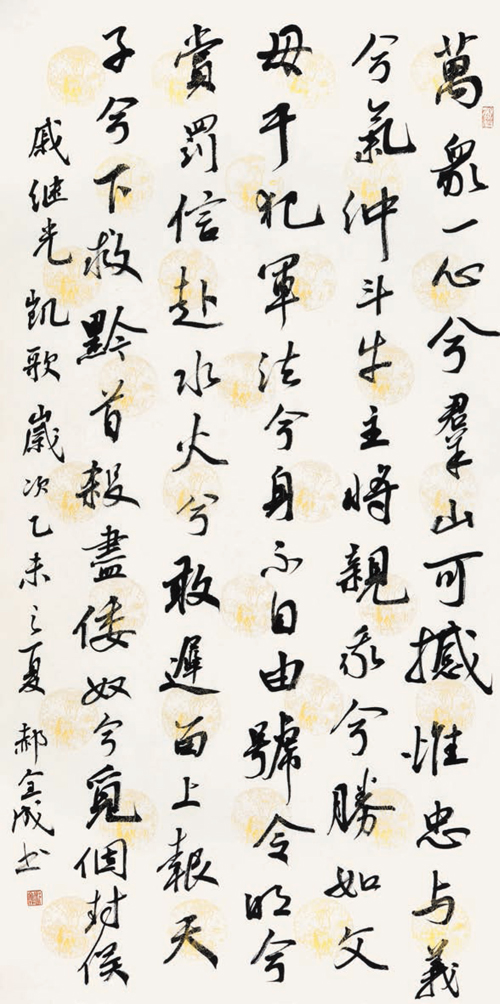 萬衆一心兮羣山可撼惟忠与義
兮氣沖斗牛主將親我兮勝如父
母干犯軍法兮身不自由號令明兮
賞罰信赴水火兮敢遲留上報天
子兮下救黔首殺盡倭奴兮覓個封侯
戚继光凱歌歲次乙未之夏郝全成书